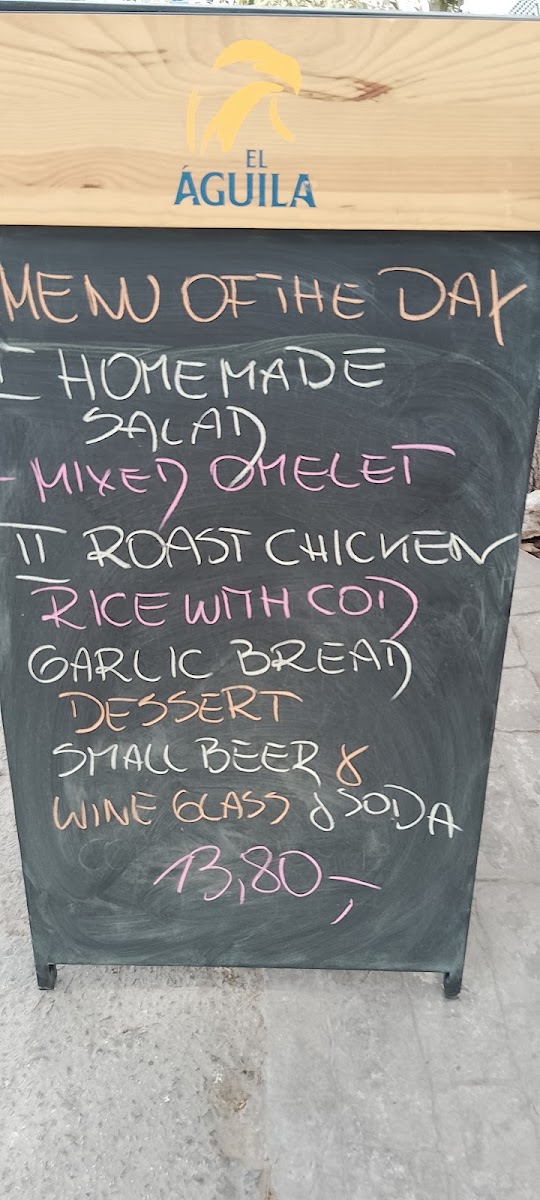 EL
ÁGUILA
MENU OF THE DAY
I HOMEMADE
SALAD
- MIXED OMELET
II ROAST CHICKEN
RICE WITH COD
GARLIC BREAD
DESSERT
SMALL BEER o
WINE GLASS o SODA
13,80,-